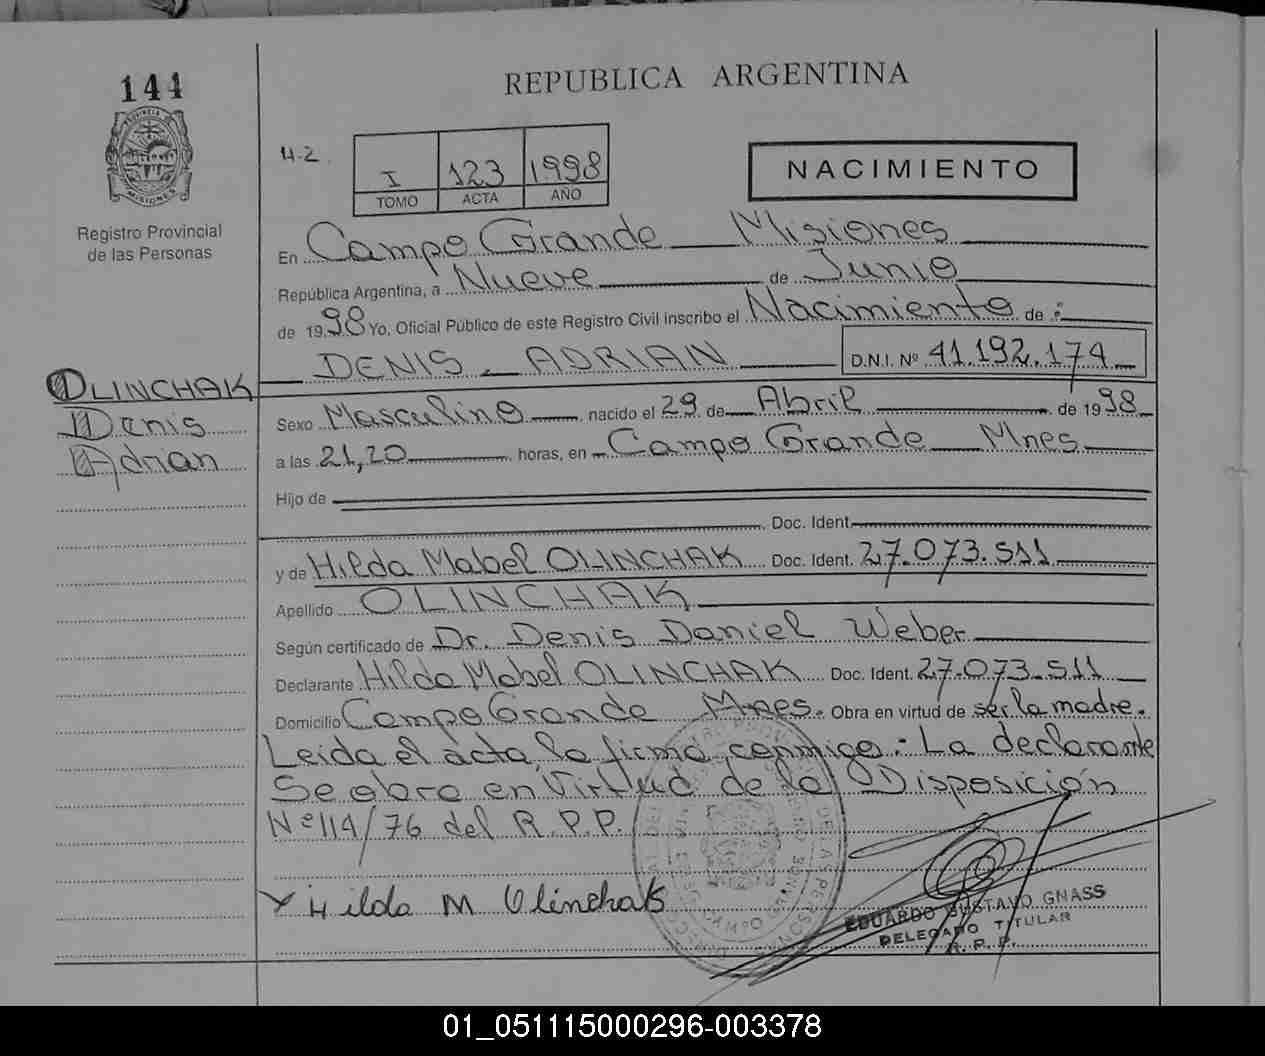 144
REPUBLICA ARGENTINA
PROVINCIA DE MISIONES
Registro Provincial
de las Personas
H.2
I 123 1998
TOMO ACTA AÑO
NACIMIENTO
En Campo Grande Misiones
República Argentina, a Nueve de Junio
de 1998 Yo, Oficial Público de este Registro Civil inscribo el Nacimiento de :
DENIS ADRIAN D.N.I. Nº 41.192.174
OLINCHAK
Denis
Adrian
Sexo Masculino nacido el 29 de Abril de 1998
a las 21,20 horas, en Campo Grande Mnes
Hijo de
Doc. Ident.
y de Hilda Mabel OLINCHAK Doc. Ident. 27.073.511
Apellido OLINCHAK
Según certificado de Dr. Denis Daniel Weber
Declarante Hilda Mabel OLINCHAK Doc. Ident. 27.073.511
Domicilio Campo Grande Mnes. Obra en virtud de ser la madre.
Leida el acta, la firma conmigo: La declarante
Se obra en Virtud de la Disposición
Nº 114/76 del R.P.P.
Hilda M Olinchak
EDUARDO GUSTAVO GNASS
DELEGADO TITULAR
R.P.P.
01_051115000296-003378